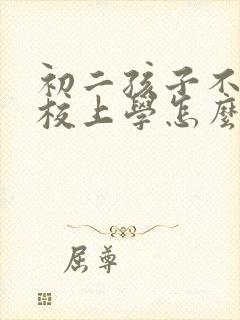 初二孩子不
校上學怎麼
屈尊